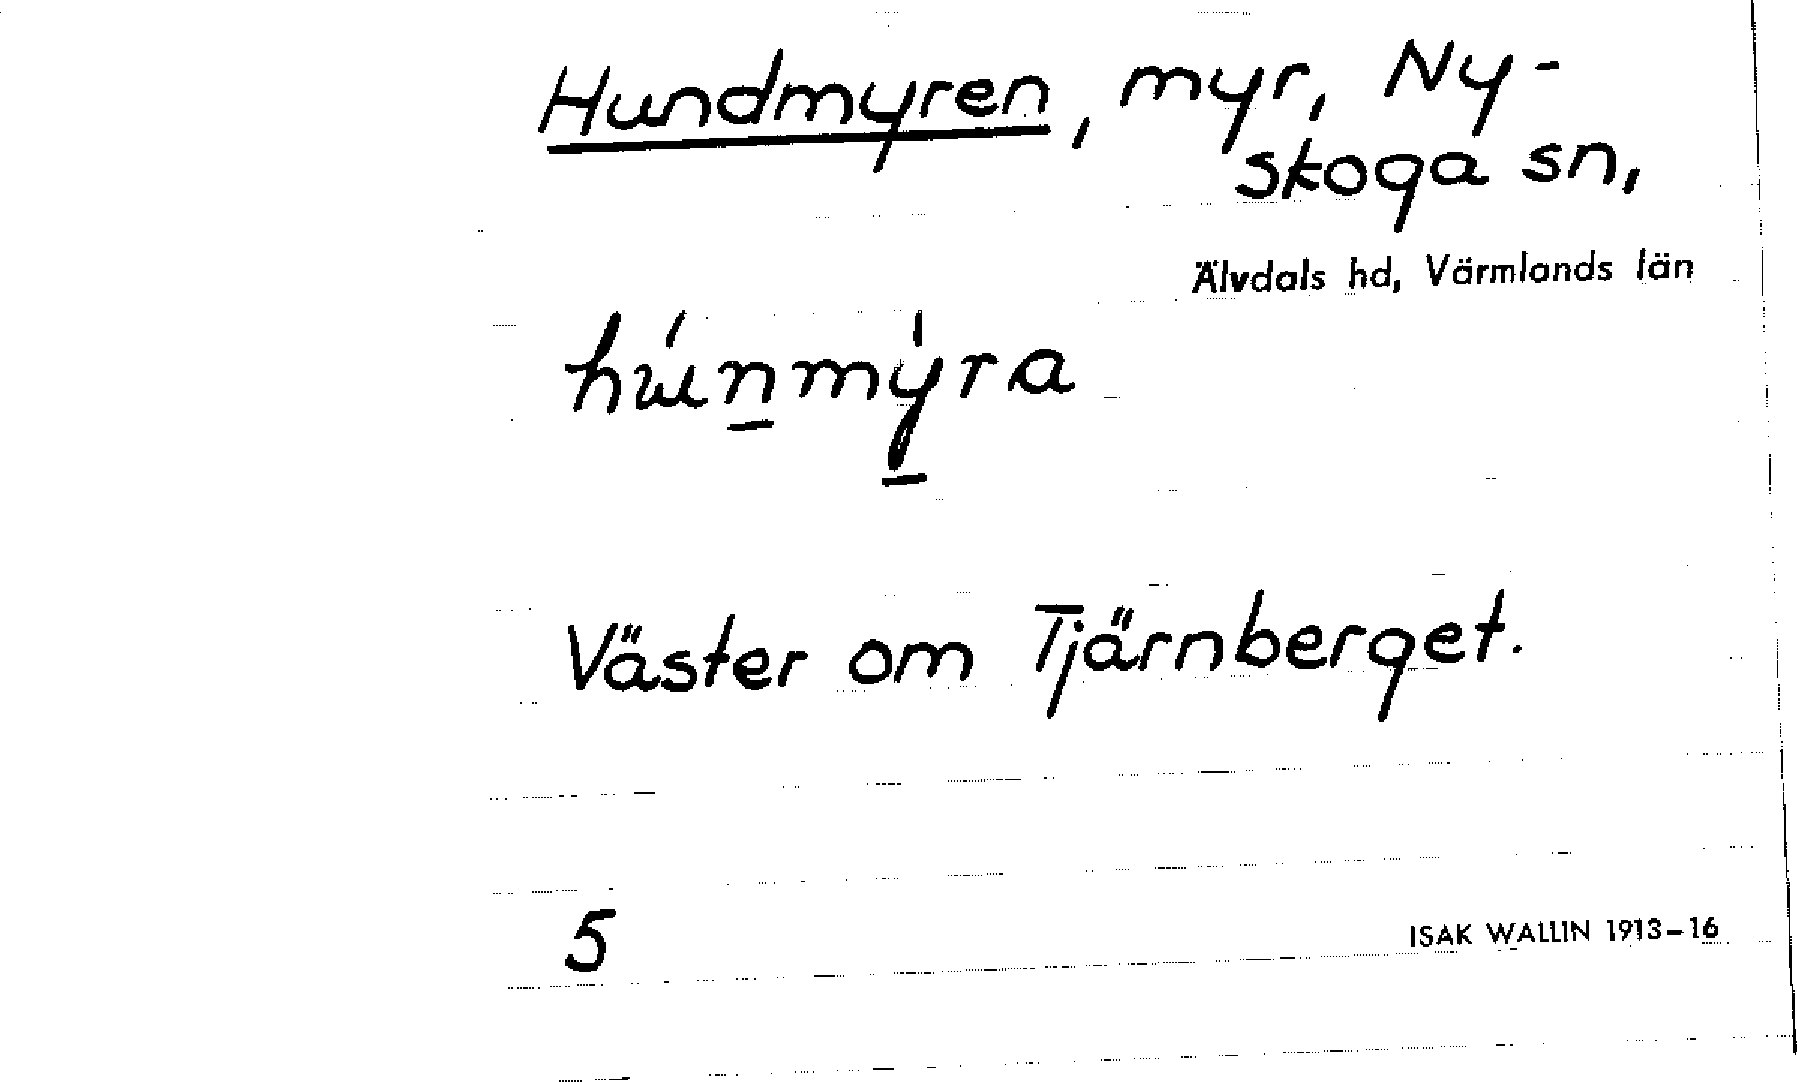 Hundmyren, myr, Ny-
skoga sn,
Älvdals hd, Värmlands län
hún̲mý̲ra
Väster om Tjärnberget.
5
ISAK WALLIN 1913-16